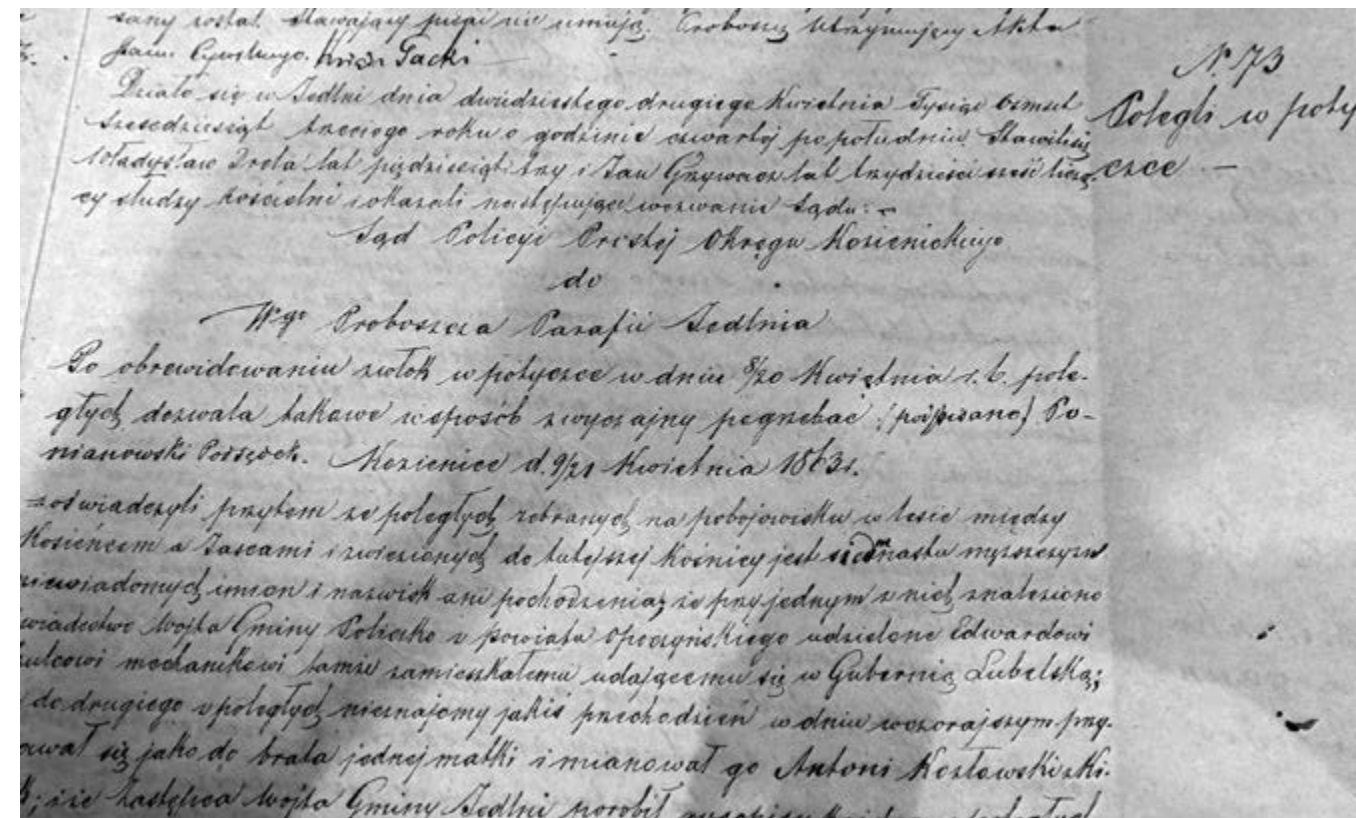 sany został. Stawający pisać nie umieją. Proboszcz Utrzymujący Akta
Stanu Cywilnego. Xiądz Gacki
N. 73
Polegli w poty
czce —
Działo się w Jedlni dnia dwudziestego drugiego Kwietnia Tysiąc Ośmset
sześćdziesiąt trzeciego roku o godzinie czwartej po południu. Stawili się
Władysław Drela lat pięćdziesiąt trzy i Jan Grzywacz lat trzydzieści sześć liczą
cy słudzy kościelni i okazali następujące wezwanie Sądu: —
Sąd Policyi Prostej Okręgu Kozienickiego
do
Wgo Proboszcza Parafii Jedlnia
Po obrewidowaniu zwłok w potyczce w dniu 8/20 Kwietnia r. b. pole-
głych dozwala takowe w sposób zwyczajny pogrzebać (podpisano) Po-
nianowski Podsędek. Kozienice d. 9/21 Kwietnia 1863 r.
oświadczyli przytem że poległych zebranych na pobojowisku w lesie między
Kosieńcem a Jaścami i zwiezionych do tutejszej Kośnicy jest siedmnastu mężczyzn
niewiadomych imion i nazwisk ani pochodzenia, że przy jednym z nich znaleziono
świadectwo Wójta Gminy Policzko z powiatu Opoczyńskiego udzielone Edwardowi
mechanikowi tamże zamieszkałemu udającemu się w Gubernią Lubelską;
do drugiego z poległych nieznajomy jakiś przechodzień w dniu wczorajszym przy-
awał się jako do brata jednej matki i mianował go Antoni Kozłowski
; i że Zastępca Wójta Gminy Jedlni porobił poległych